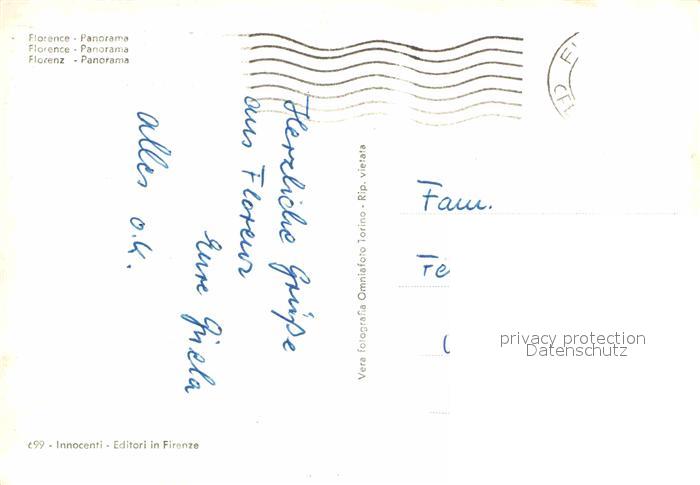 Florence - Panorama
Florence - Panorama
Florenz - Panorama
Herzliche Grüße
aus Florenz
Eure Gisela
Alles o.k.
Vera fotografia Omniafoto Torino - Rip. vietata
Fam.
Fe
privacy protection
Datenschutz
699 - Innocenti - Editori in Firenze